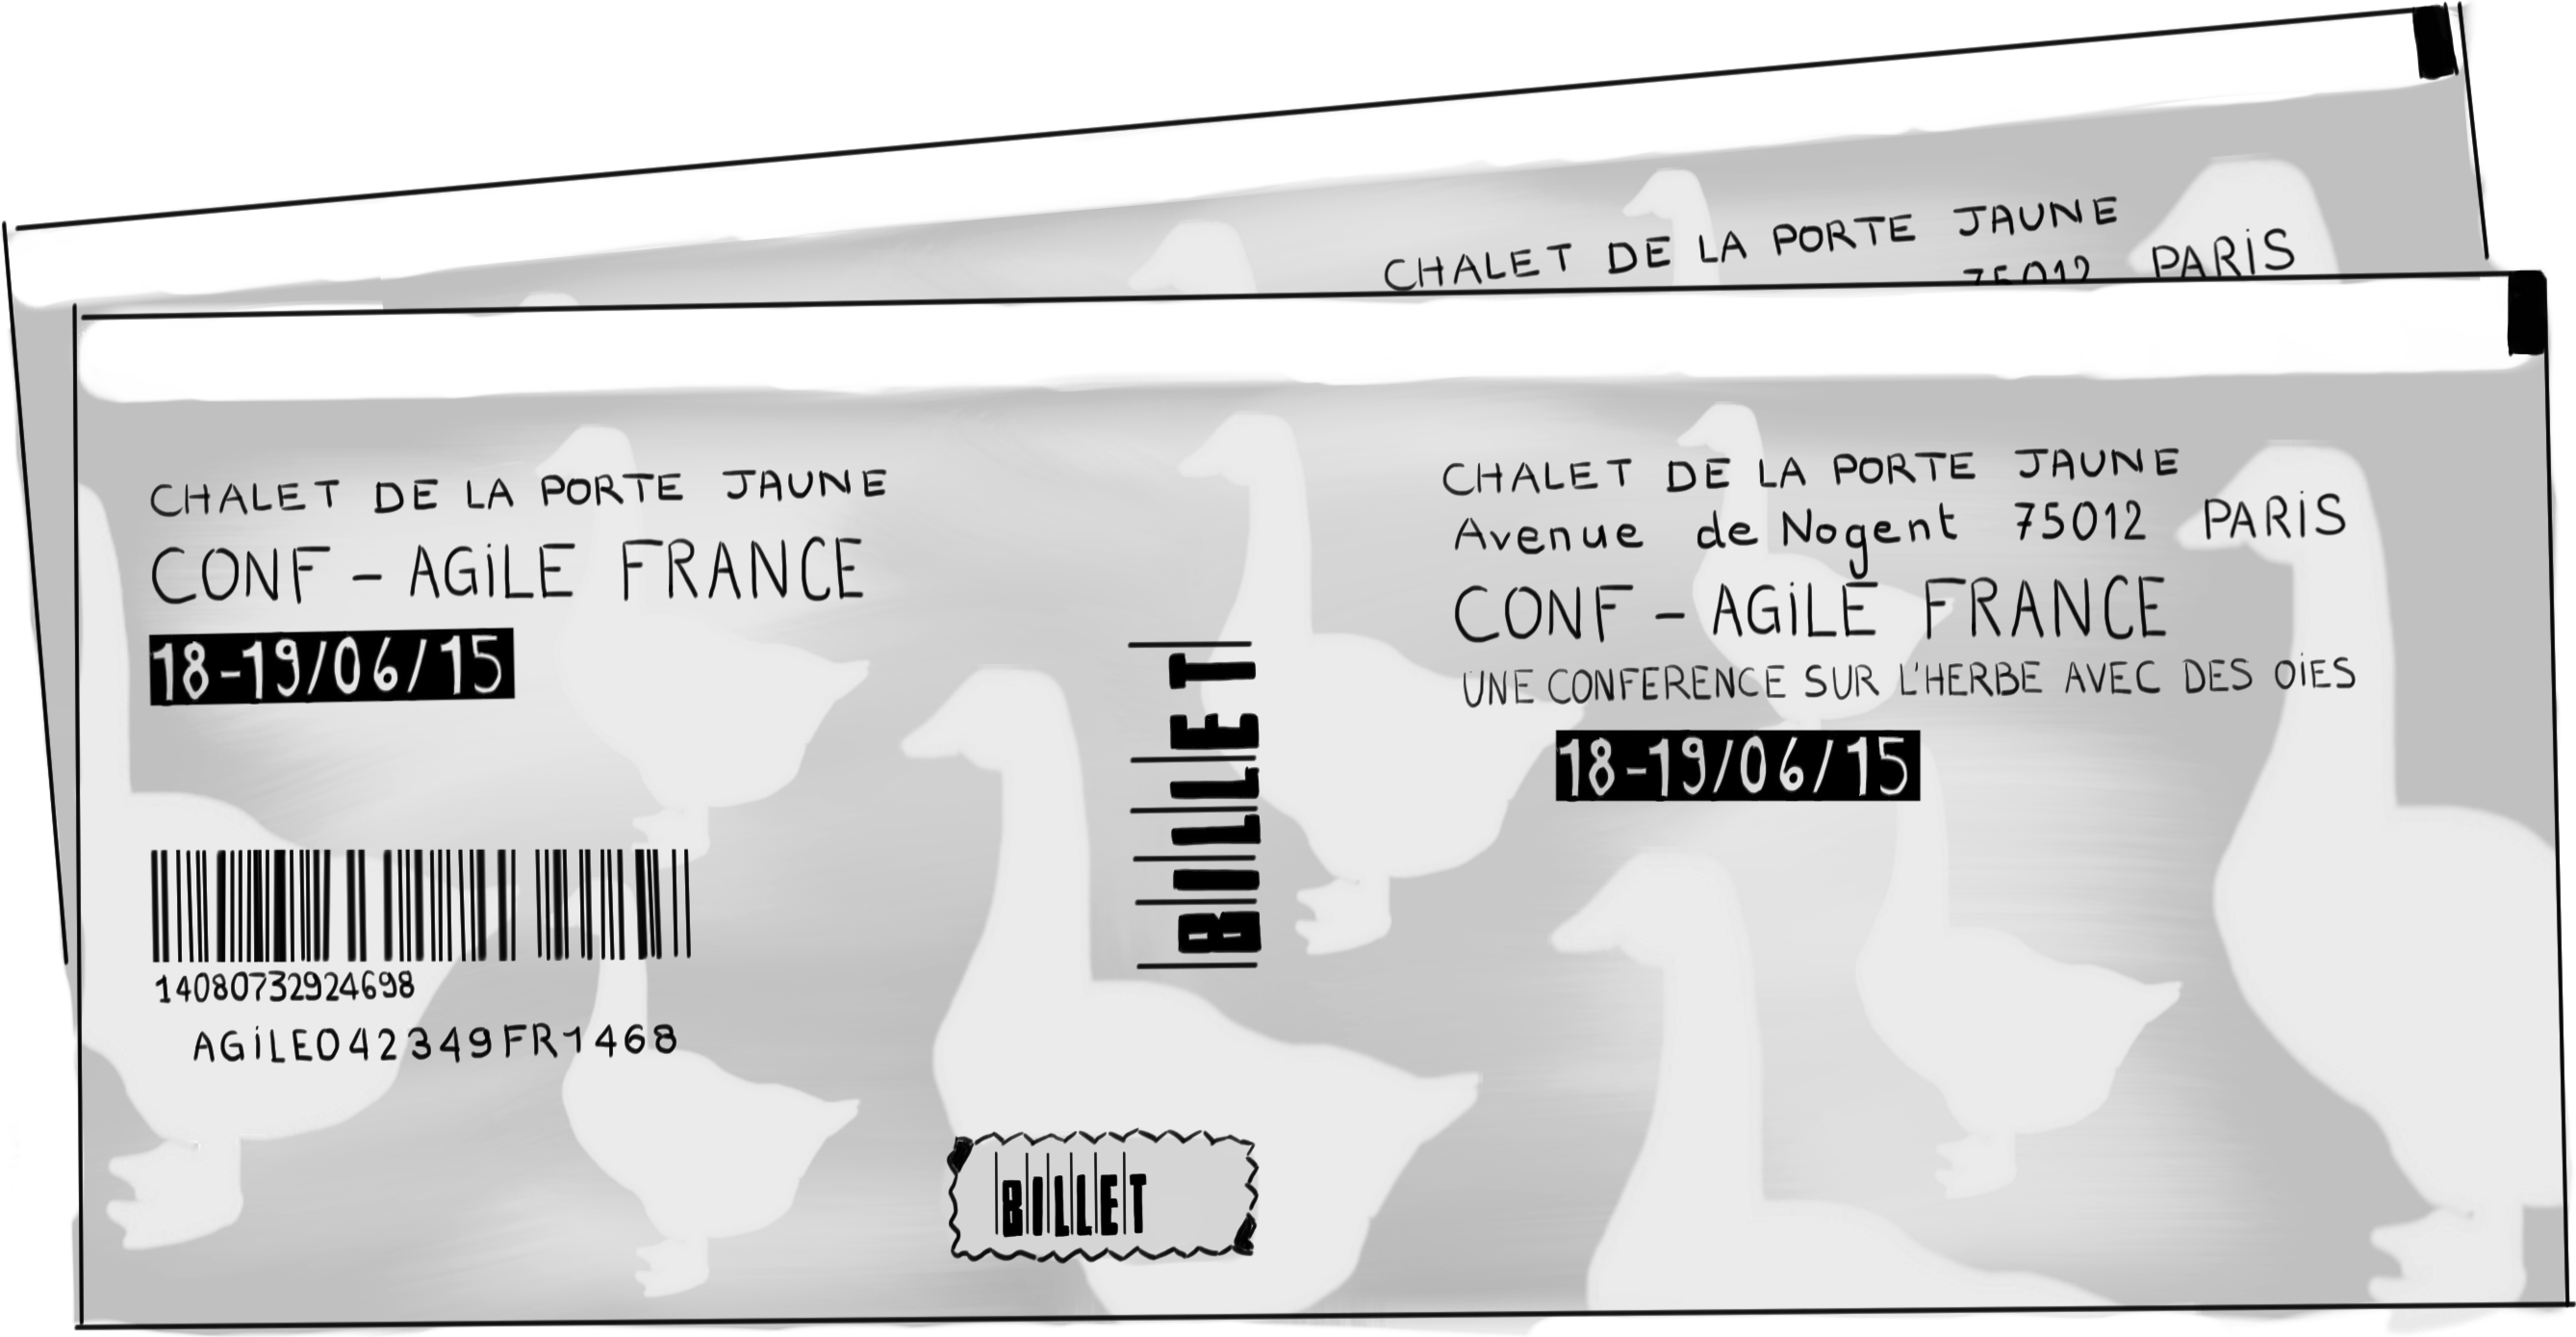 CHALET DE LA PORTE JAUNE
PARiS
CHALET DE LA PORTE JAUNE
CONF - AGiLE FRANCE
18-19/06/15
14080732924698
AGiLE042349FR1468
BILLET
BILLET
CHALET DE LA PORTE JAUNE
Avenue de Nogent 75012 PARiS
CONF - AGiLE FRANCE
UNE CONFERENCE SUR L'HERBE AVEC DES OiES
18-19/06/15